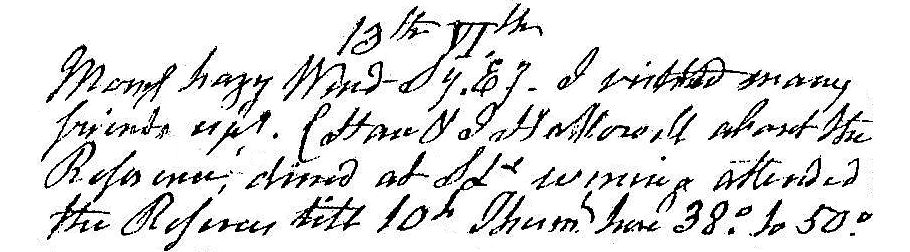 13th VIth
Morng hazy Wind Sy. Ey. - I visited many
friends viz. & J Hallowell about the
Reference, dined at evening attended
the Referees till 10h Therm. here 38° to 50°